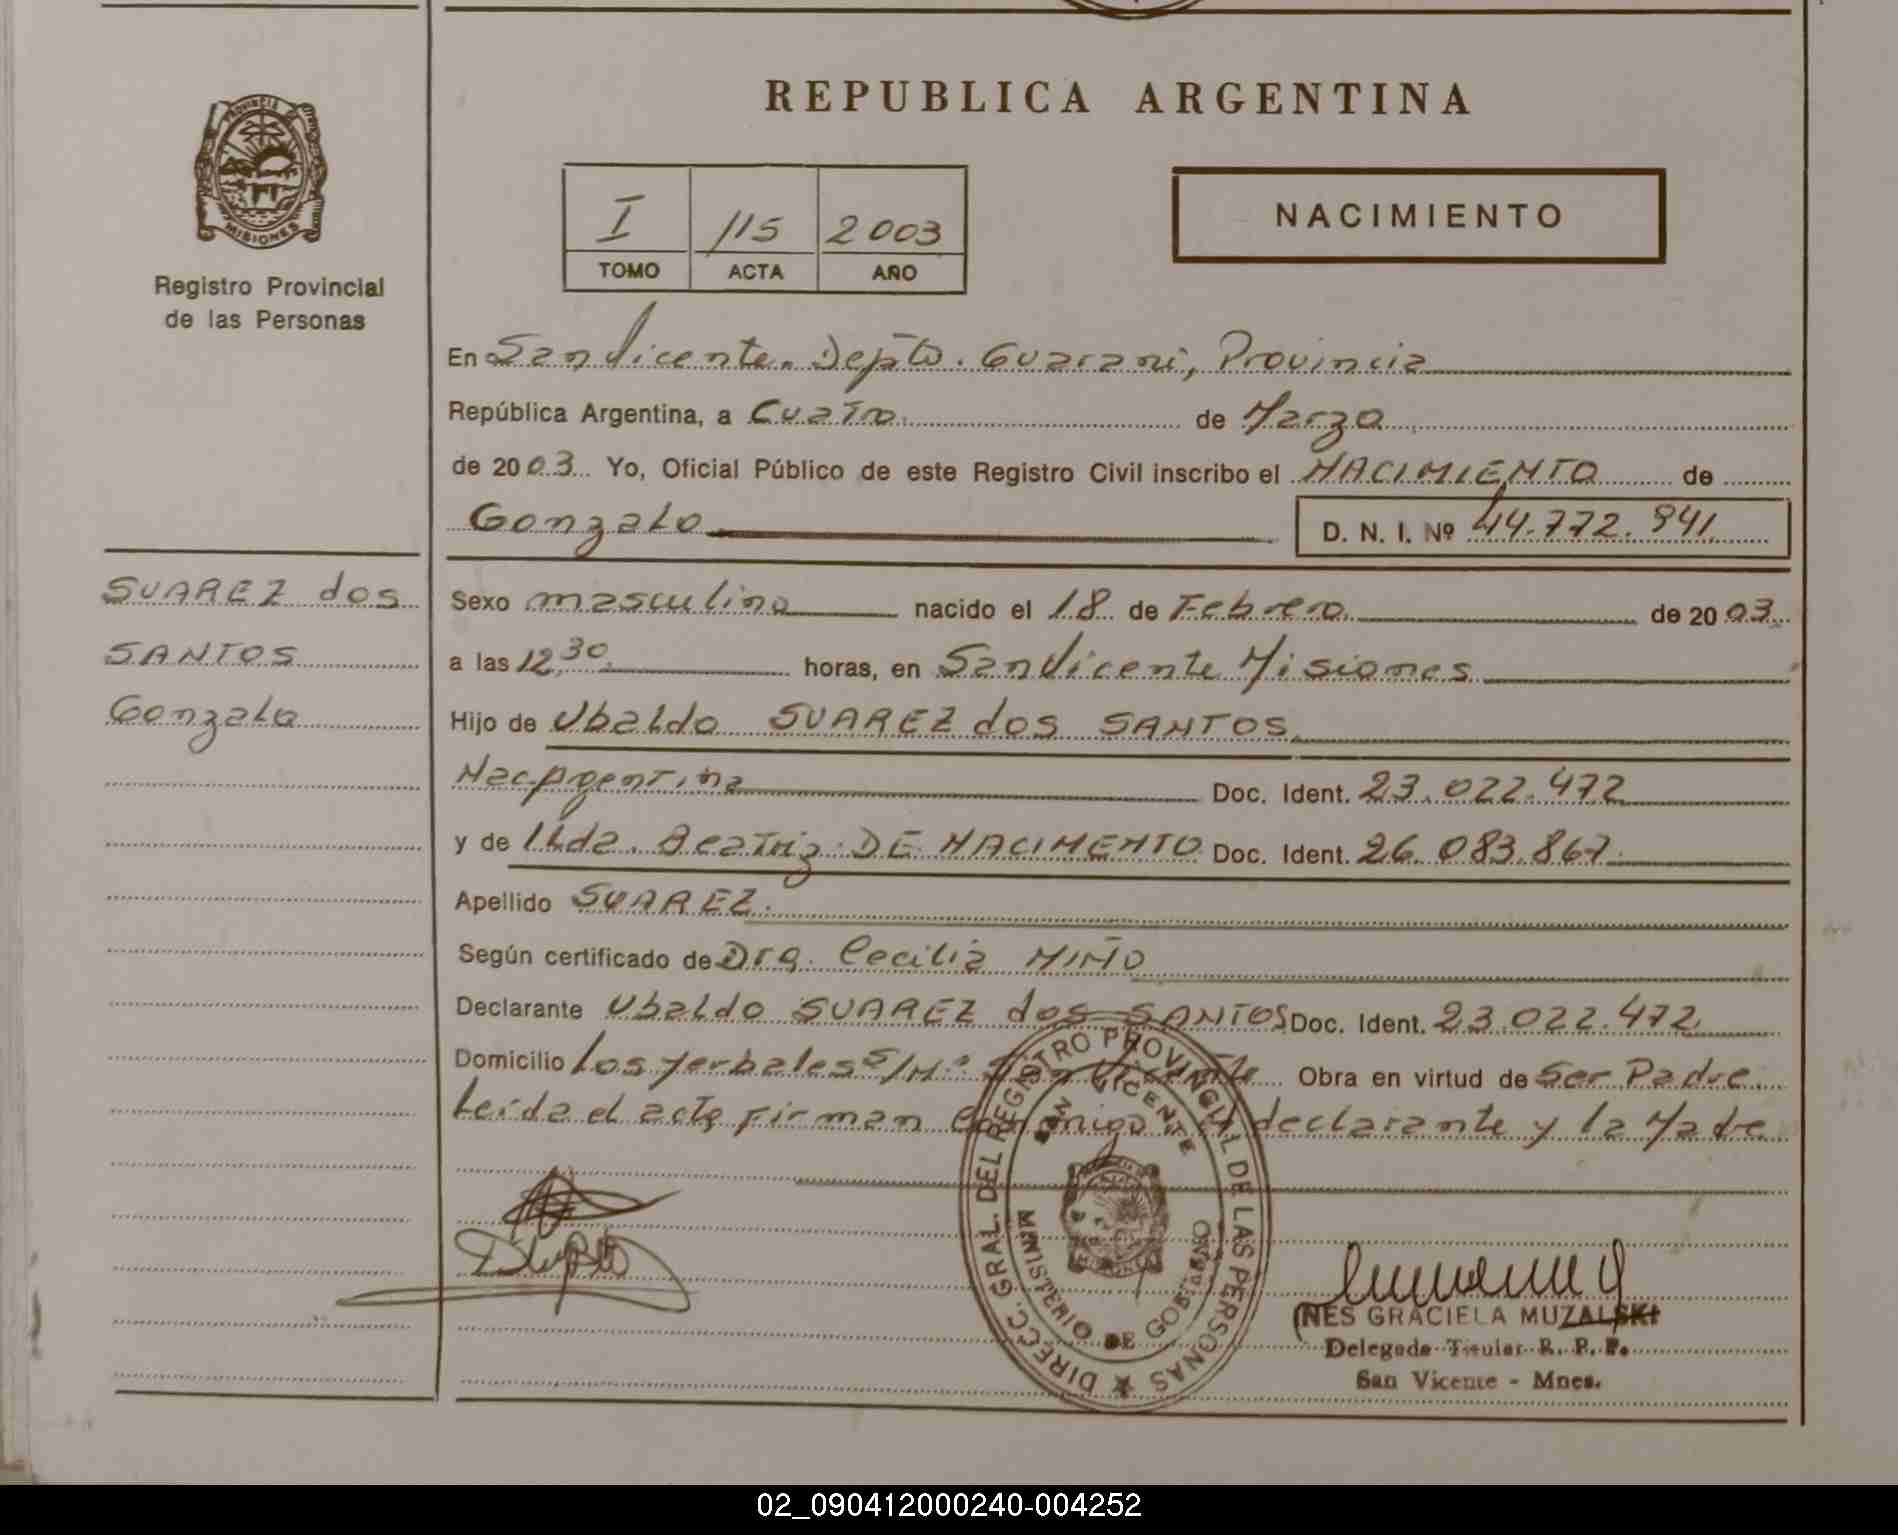 REPUBLICA ARGENTINA
PROVINCIA DE
MISIONES
Registro Provincial
de las Personas
I 115 2003
TOMO ACTA AÑO
NACIMIENTO
En San Vicente. Depto. Guarani, Provincia
República Argentina, a Cuatro de Marzo
de 2003 Yo, Oficial Público de este Registro Civil inscribo el NACIMIENTO de
Gonzalo D. N. I. Nº 44.772.941
SUAREZ dos
SANTOS
Gonzalo
Sexo masculino nacido el 18 de Febrero de 2003
a las 12,30 horas, en San Vicente Misiones
Hijo de Ubaldo SUAREZ dos SANTOS
Nac. Argentina Doc. Ident. 23.022.472
y de Ilda. Beatriz DE NACIMENTO Doc. Ident. 26.083.867
Apellido SUAREZ.
Según certificado de Dra. Cecilia MIÑO
Declarante Ubaldo SUAREZ dos SANTOS Doc. Ident. 23.022.472
Domicilio Los yerbales S/Nº San Vicente Obra en virtud de Ser Padre
Leída el acta Firman conmigo el declarante y la Madre
DIRECC. GRAL. DEL REGISTRO PROVINCIAL DE LAS PERSONAS
SAN VICENTE
MINISTERIO DE GOBIERNO
INES GRACIELA MUZALSKI
Delegada Titular R. P. P.
San Vicente - Mnes.
02_090412000240-004252